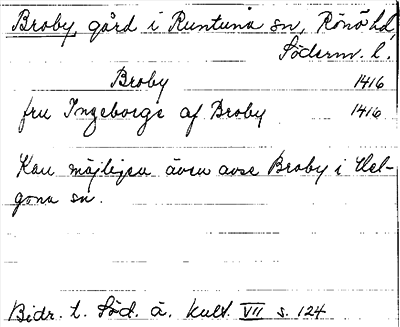 Broby, gård i Runtuna sn, Rönö hd,
Söderm. l.
Broby 1416
fru Ingeborgs af Broby 1416
Kan möjligen även avse Broby i Hel-
gona sn.
Bidr. t. Söd. ä. Kult VII s. 124